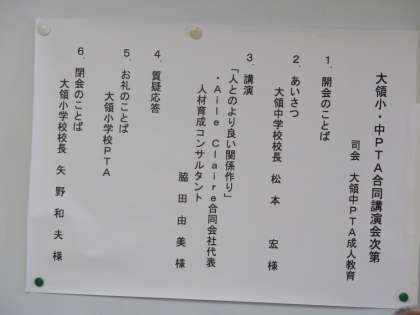 大領小・中PTA合同講演会次第
司会 大領中PTA成人教育
1.開会のことば
2.あいさつ
大領中学校校長 松本 宏 様
3.講演
「人とのより良い関係作り」
・Aile Claire合同会社代表
人材育成コンサルタント
脇田由美 様
4.質疑応答
5.お礼のことば
大領小学校PTA
6.閉会のことば
大領小学校校長 矢野和夫 様